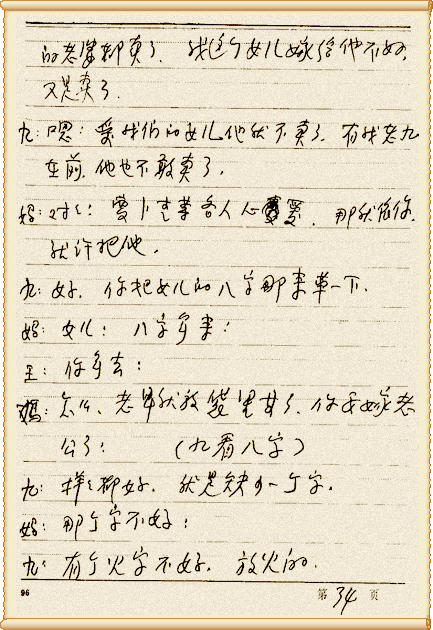 的老婆都卖了. 我这个女儿嫁给他不好,
又是卖了.
九: 口恩: 爱我们的女儿他就不卖了, 有我老九
在前, 他也不敢卖了.
妈: 对々: 那就依你,
就许把他.
九: 好, 你把女儿的八字那来单一下.
妈: 女儿: 八字多来:
王: 你多去:
妈: 怎么, 老早就放 里甘了, 你要嫁老
公了: (九看八字)
九: 样々都好, 就是缺少一个字.
妈: 那个字不好:
九: 有个火字不好, 放火的.
96 第34页